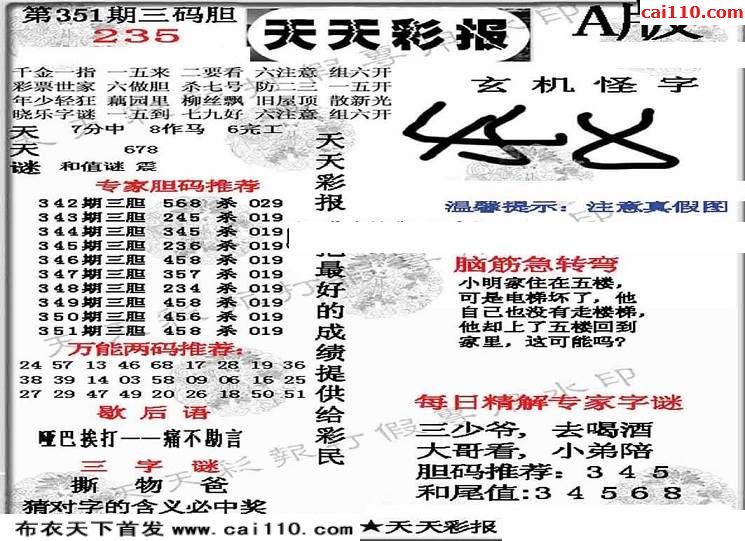 第351期三码胆
235
天天彩报
A版
cai110.com
千金一指 一五来 二要看 六注意 组六开
彩票世家 六做胆 杀七号 防二三 一五开
年少轻狂 藕园里 柳丝飘 旧屋顶 散新光
晓乐字谜 一五到 七九好 六注意 组六开
天天谜
7分中 8作马 6完工
678
和值谜 震
专家胆码推荐
342期三胆 568 杀 029
343期三胆 245 杀 019
344期三胆 345 杀 019
345期三胆 236 杀 019
346期三胆 458 杀 019
347期三胆 357 杀 019
348期三胆 234 杀 019
349期三胆 458 杀 019
350期三胆 456 杀 019
351期三胆 458 杀 019
万能两码推荐:
24 57 13 46 68 17 28 19 36
38 39 14 03 58 09 06 16 25
27 29 47 49 20 26 18 50 51
歇后语
哑巴挨打——痛不勘言
三字谜
撕 物 爸
猜对字的含义必中奖
天天彩报
把最好的成绩提供给彩民
玄机怪字
温馨提示: 注意真假图
脑筋急转弯
小明家住在五楼,
可是电梯坏了,他
自己也没有走楼梯,
他却上了五楼回到
家里,这可能吗?
每日精解专家字谜
三少爷, 去喝酒
大哥看, 小弟陪
胆码推荐: 3 4 5
和尾值:3 4 5 6 8
布衣天下首发 www.cai110.com ★天天彩报